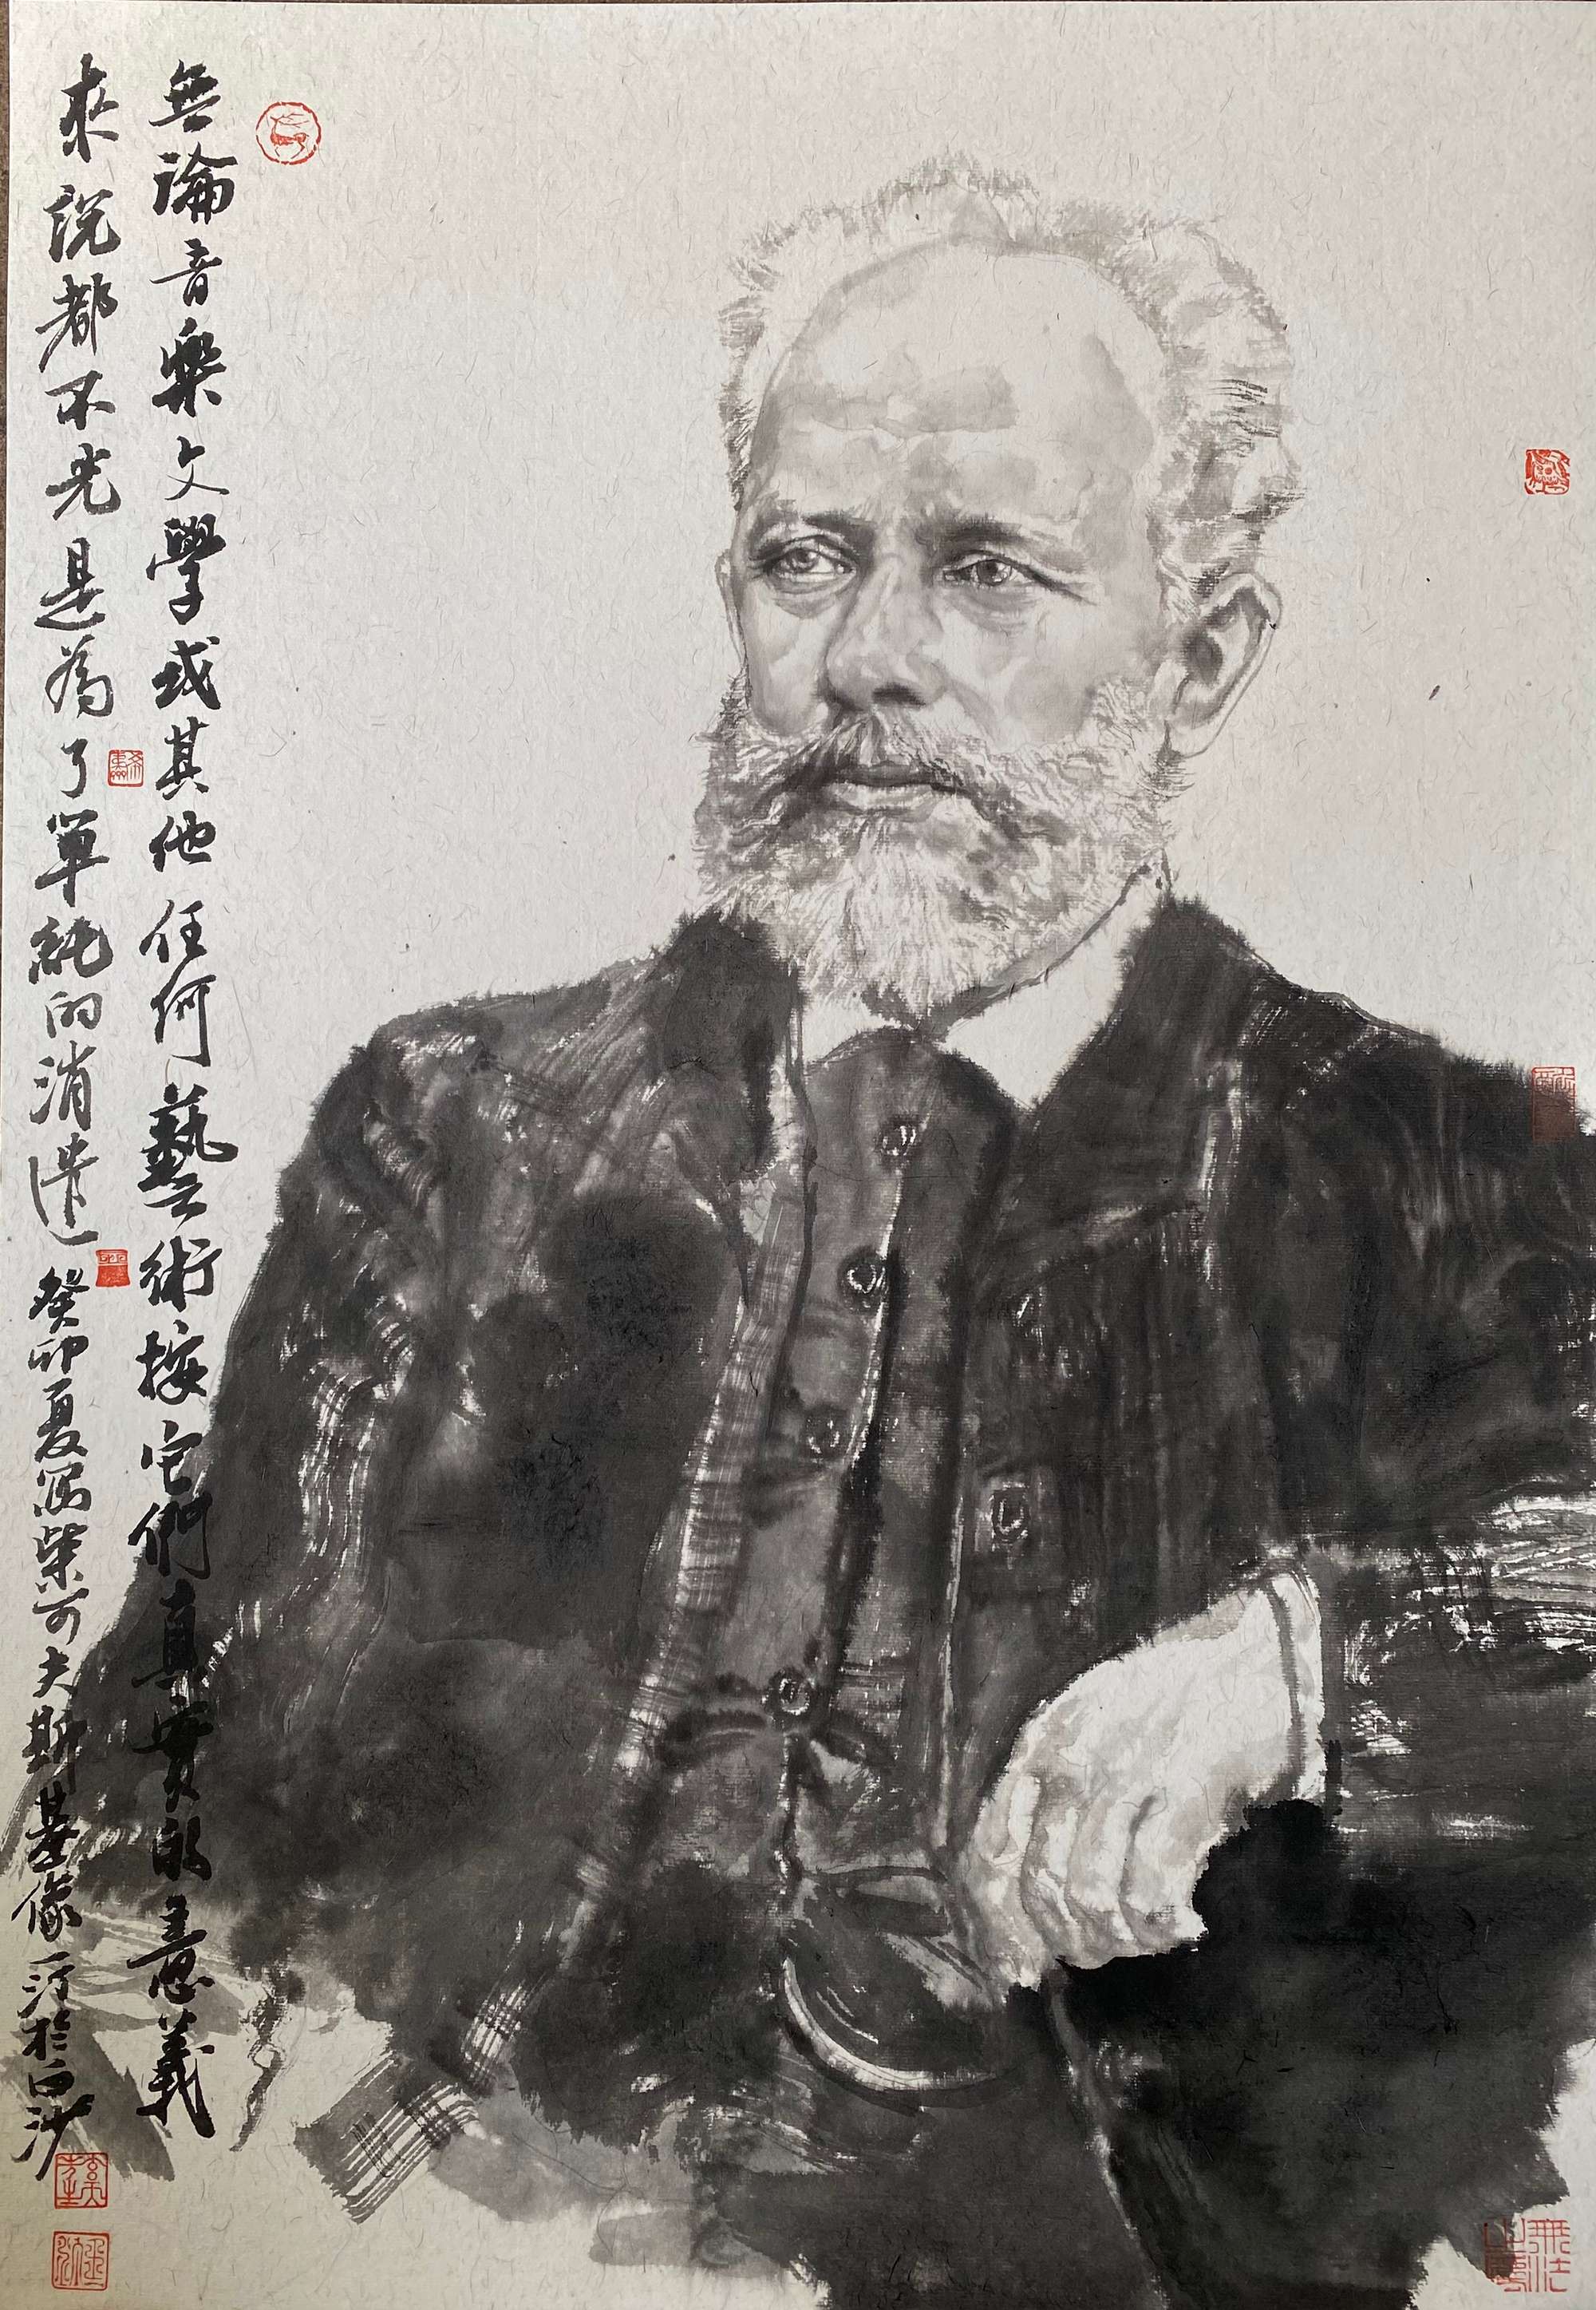 無論音樂文學或其他任何藝術按它們真實的意義
來說都不光是為了單純的消遣 癸卯夏寫柴可夫斯基像 於白沙